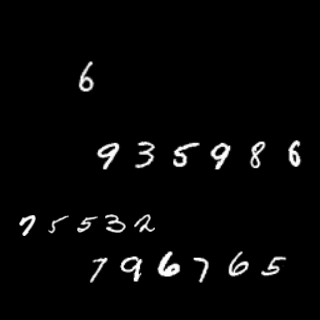 6
935986
75532
796765